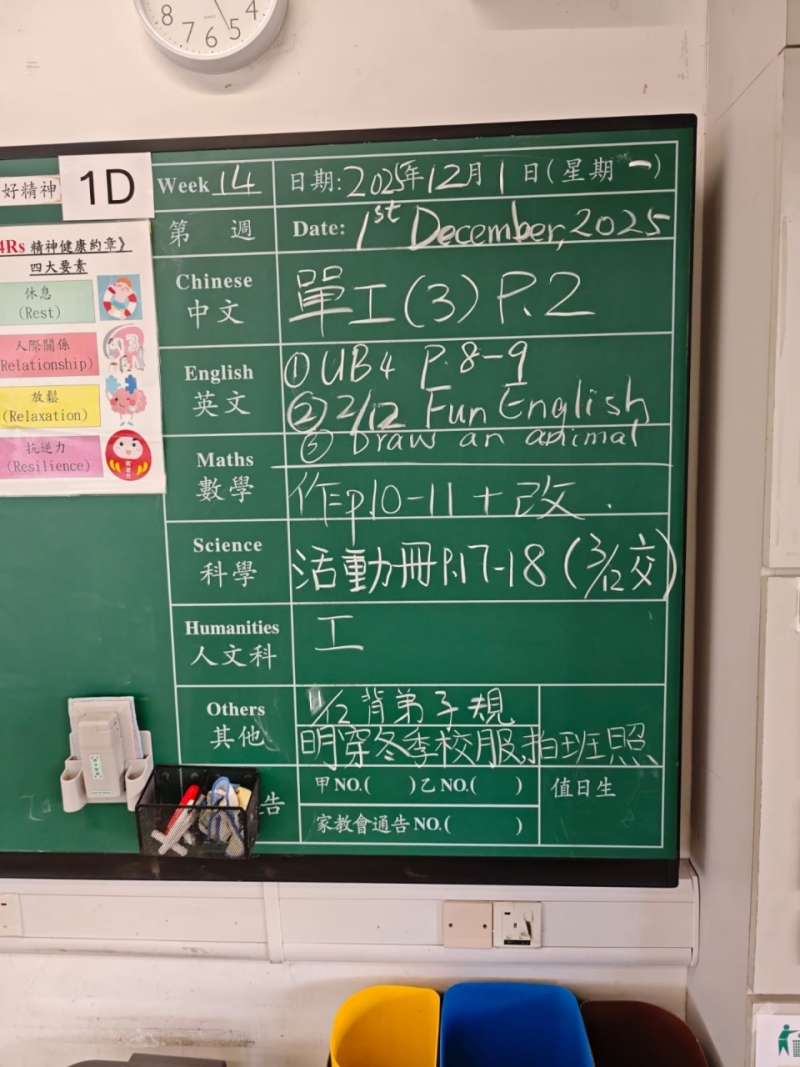 8
7
6
5
4
好精神
1D
Week 14
日期: 2025年12月1日(星期一)
第 週
Date: 1st December, 2025
4Rs 精神健康約章》
四大要素
休息
(Rest)
人際關係
Relationship)
放鬆
(Relaxation)
抗逆力
(Resilience)
Chinese
中文
單工(3) P.2
English
英文
① UB4 P.8-9
② 2/12 Fun English
③ Draw an animal
Maths
數學
作p.10-11 + 改.
Science
科學
活動冊P.17-18 (3/12交)
Humanities
人文科
工
Others
其他
/12 背弟子規
明穿冬季校服拍班照
告
甲NO.( )乙NO.( )
值日生
家教會通告NO.( )